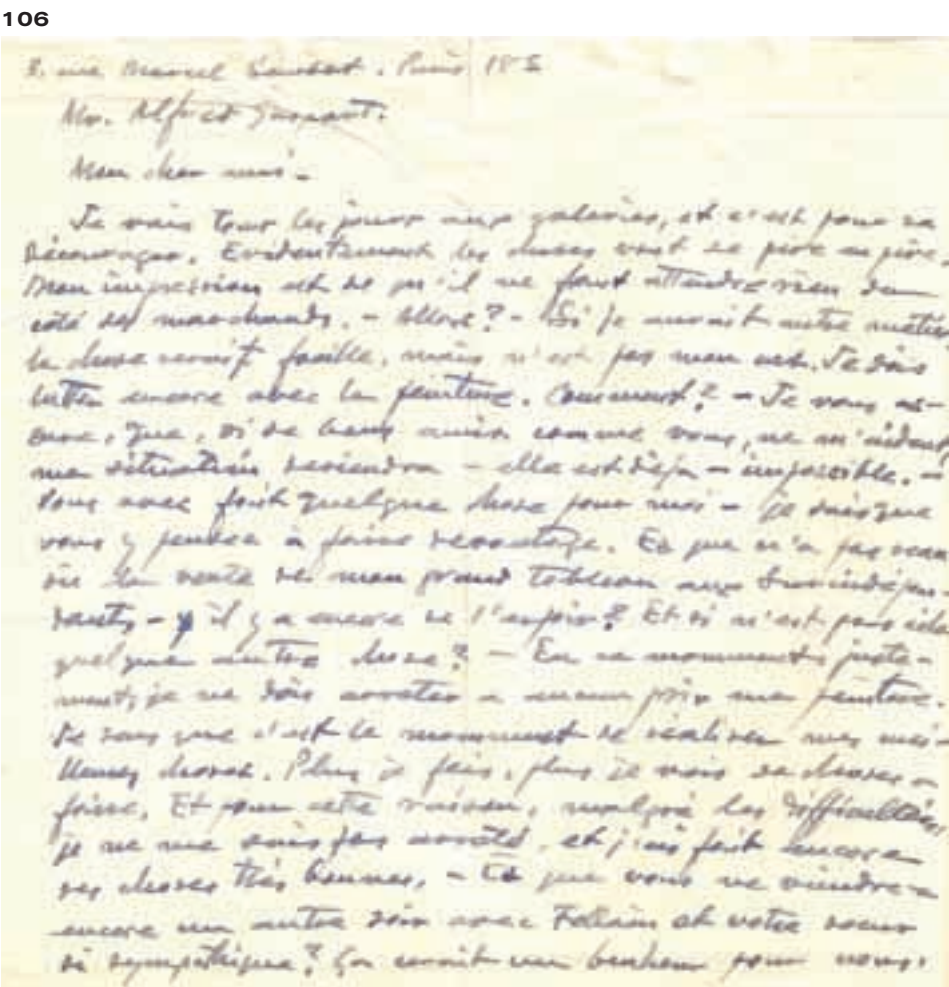 106
3. rue Marcel Sembat. Paris 18e
Mr. Alfred
Mon cher ami -
Je vais tous les jours aux galeries, et c'est pour se
décourager. Evidentement les choses vont de pire en pire.
Mon impression est de qu'il ne faut attendre rien du
coté des marchands. - Allore? - Si je aurait autre métier
la chose serait facille, mais n'est pas mon cas. Je dois
lutter encore avec la peinture. Comment? - Je vous as-
sure, que, si de bons amis comme vous, ne m'aident
ma situation deviendra - elle est déja - impossible. -
Vous avez fait quelque chose pour moi - je sais que
vous y pensez à faire davantage. Es que n'a pas
de la vente de mon grand tableau aux Surindépen-
dants - il y a encore de l'espoir? Et si n'est pas cela
quelque autre chose? - En ce momment, juste-
ment, je ne dois arreter a aucun prix ma peinture.
Je sens que c'est le momment de réaliser mes mei-
lleures choses. Plus je fais, plus je vois de choses a
faire. Et pour cette raison, malgré les difficultés,
je ne me suis pas arrêté, et j'ai fait encore
des choses très bonnes. - Es que vous ne viendrez
encore un autre soir avec et votre soeur
si sympathique? Ça serait un bonheur pour nous.